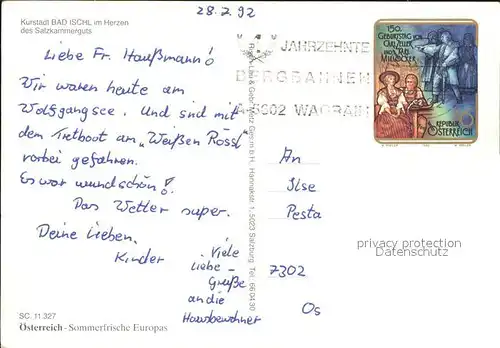 28.7.92
Kurstadt BAD ISCHL im Herzen
des Salzkammerguts
Liebe Fr. Haußmann!
Wir waren heute am
Wolfgangsee. Und sind mit
dem Tretboot am „Weißen Rössl"
vorbei gefahren.
Es war wundschön!
Das Wetter super.
Deine Lieben.
Kinder
Viele
liebe-
Grüße
an die
Hausbewohner
SC. 11.327
Österreich - Sommerfrische Europas
JAHRZEHNTE
BERGBAHNEN
A-5602 WAGRAIN
5023 Salzburg Tel. 66 04 30
150.
GEBURTSTAG VON
CARL ZELLER UND
KARL
MILLÖCKER
REPUBLIK
ÖSTERREICH
An
Ilse
Pesta
privacy protection
Datenschutz
7302
Os